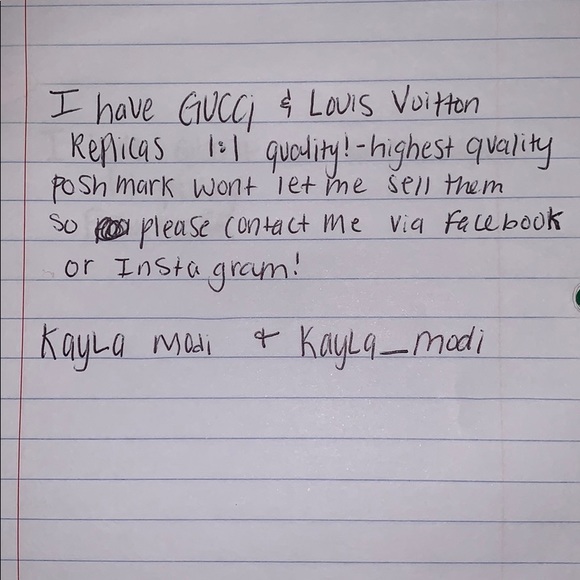 I have GUCCi & Louis Vuitton
Replicas 1:1 quality! - highest quality
poshmark wont let me sell them
so please contact me via facebook
or Instagram!
Kayla modi + Kayla_modi